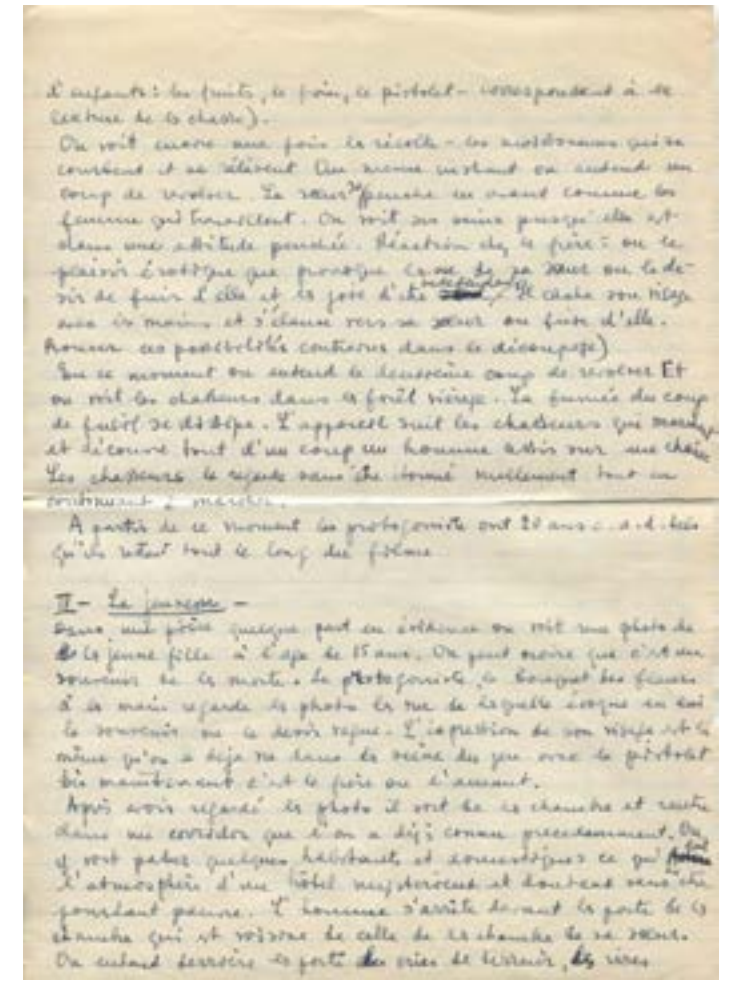 d'enfants : les fruits, le foin, le pistolet - correspondent à la
texture de la chasse).
On voit encore une fois la récolte - les moissonneurs qui se
courbent et se relèvent. Au même instant on entend un
coup de revolver. La sœur se penche en avant comme les
femmes qui travaillent. On voit ses seins puisqu'elle est
dans une attitude penchée. Réaction chez le frère : ou le
plaisir érotique que provoque la vue de sa sœur ou le dé-
sir de fuir d'elle et la joie d'être. Il cache son visage
avec les mains et s'élance vers sa sœur ou fuire d'elle.
ces possibilités contenues dans le découpage)
En ce moment on entend le deuxième coup de revolver Et
on voit les chasseurs dans la forêt vierge. La fumée du coup
de fusil se dissipe. L'appareil suit les chasseurs qui
et découvre tout d'un coup un homme assis sur une chaise
Les chasseurs le regarde sans être étonné nullement tout en
continuant à marcher.
A partir de ce moment les protagoniste ont 20 ans c. a. d.
qu'ils tout le long du filme
II - La jeunesse -
Dans une pièce quelque part en évidence on voit une photo de
la jeune fille à l'age de 15 ans. On peut croire que c'est un
souvenir de la morte. Le protagoniste, le bouquet des fleurs
à la main regarde la photo la vue de laquelle évoque en lui
le souvenir ou le desir vague. L'expression de son visage est la
même qu'on a deja vu dans la scène des jeu avec le pistolet
maintenant c'est le frère ou l'amant.
Après avoir regardé la photo il sort de la chambre et rentre
dans un corridor que l'on a déjà connu precedemment. On
y voit passer quelques habitants et domestiques ce qui
l'atmosphère d'un hôtel mysterieux et douteux sans être
pourtant pauvre. L'homme s'arrête devant la porte de la
chambre qui est voisine de celle de la chambre de sa sœur.
On entend derrière la porte des cries de terreur, des rires